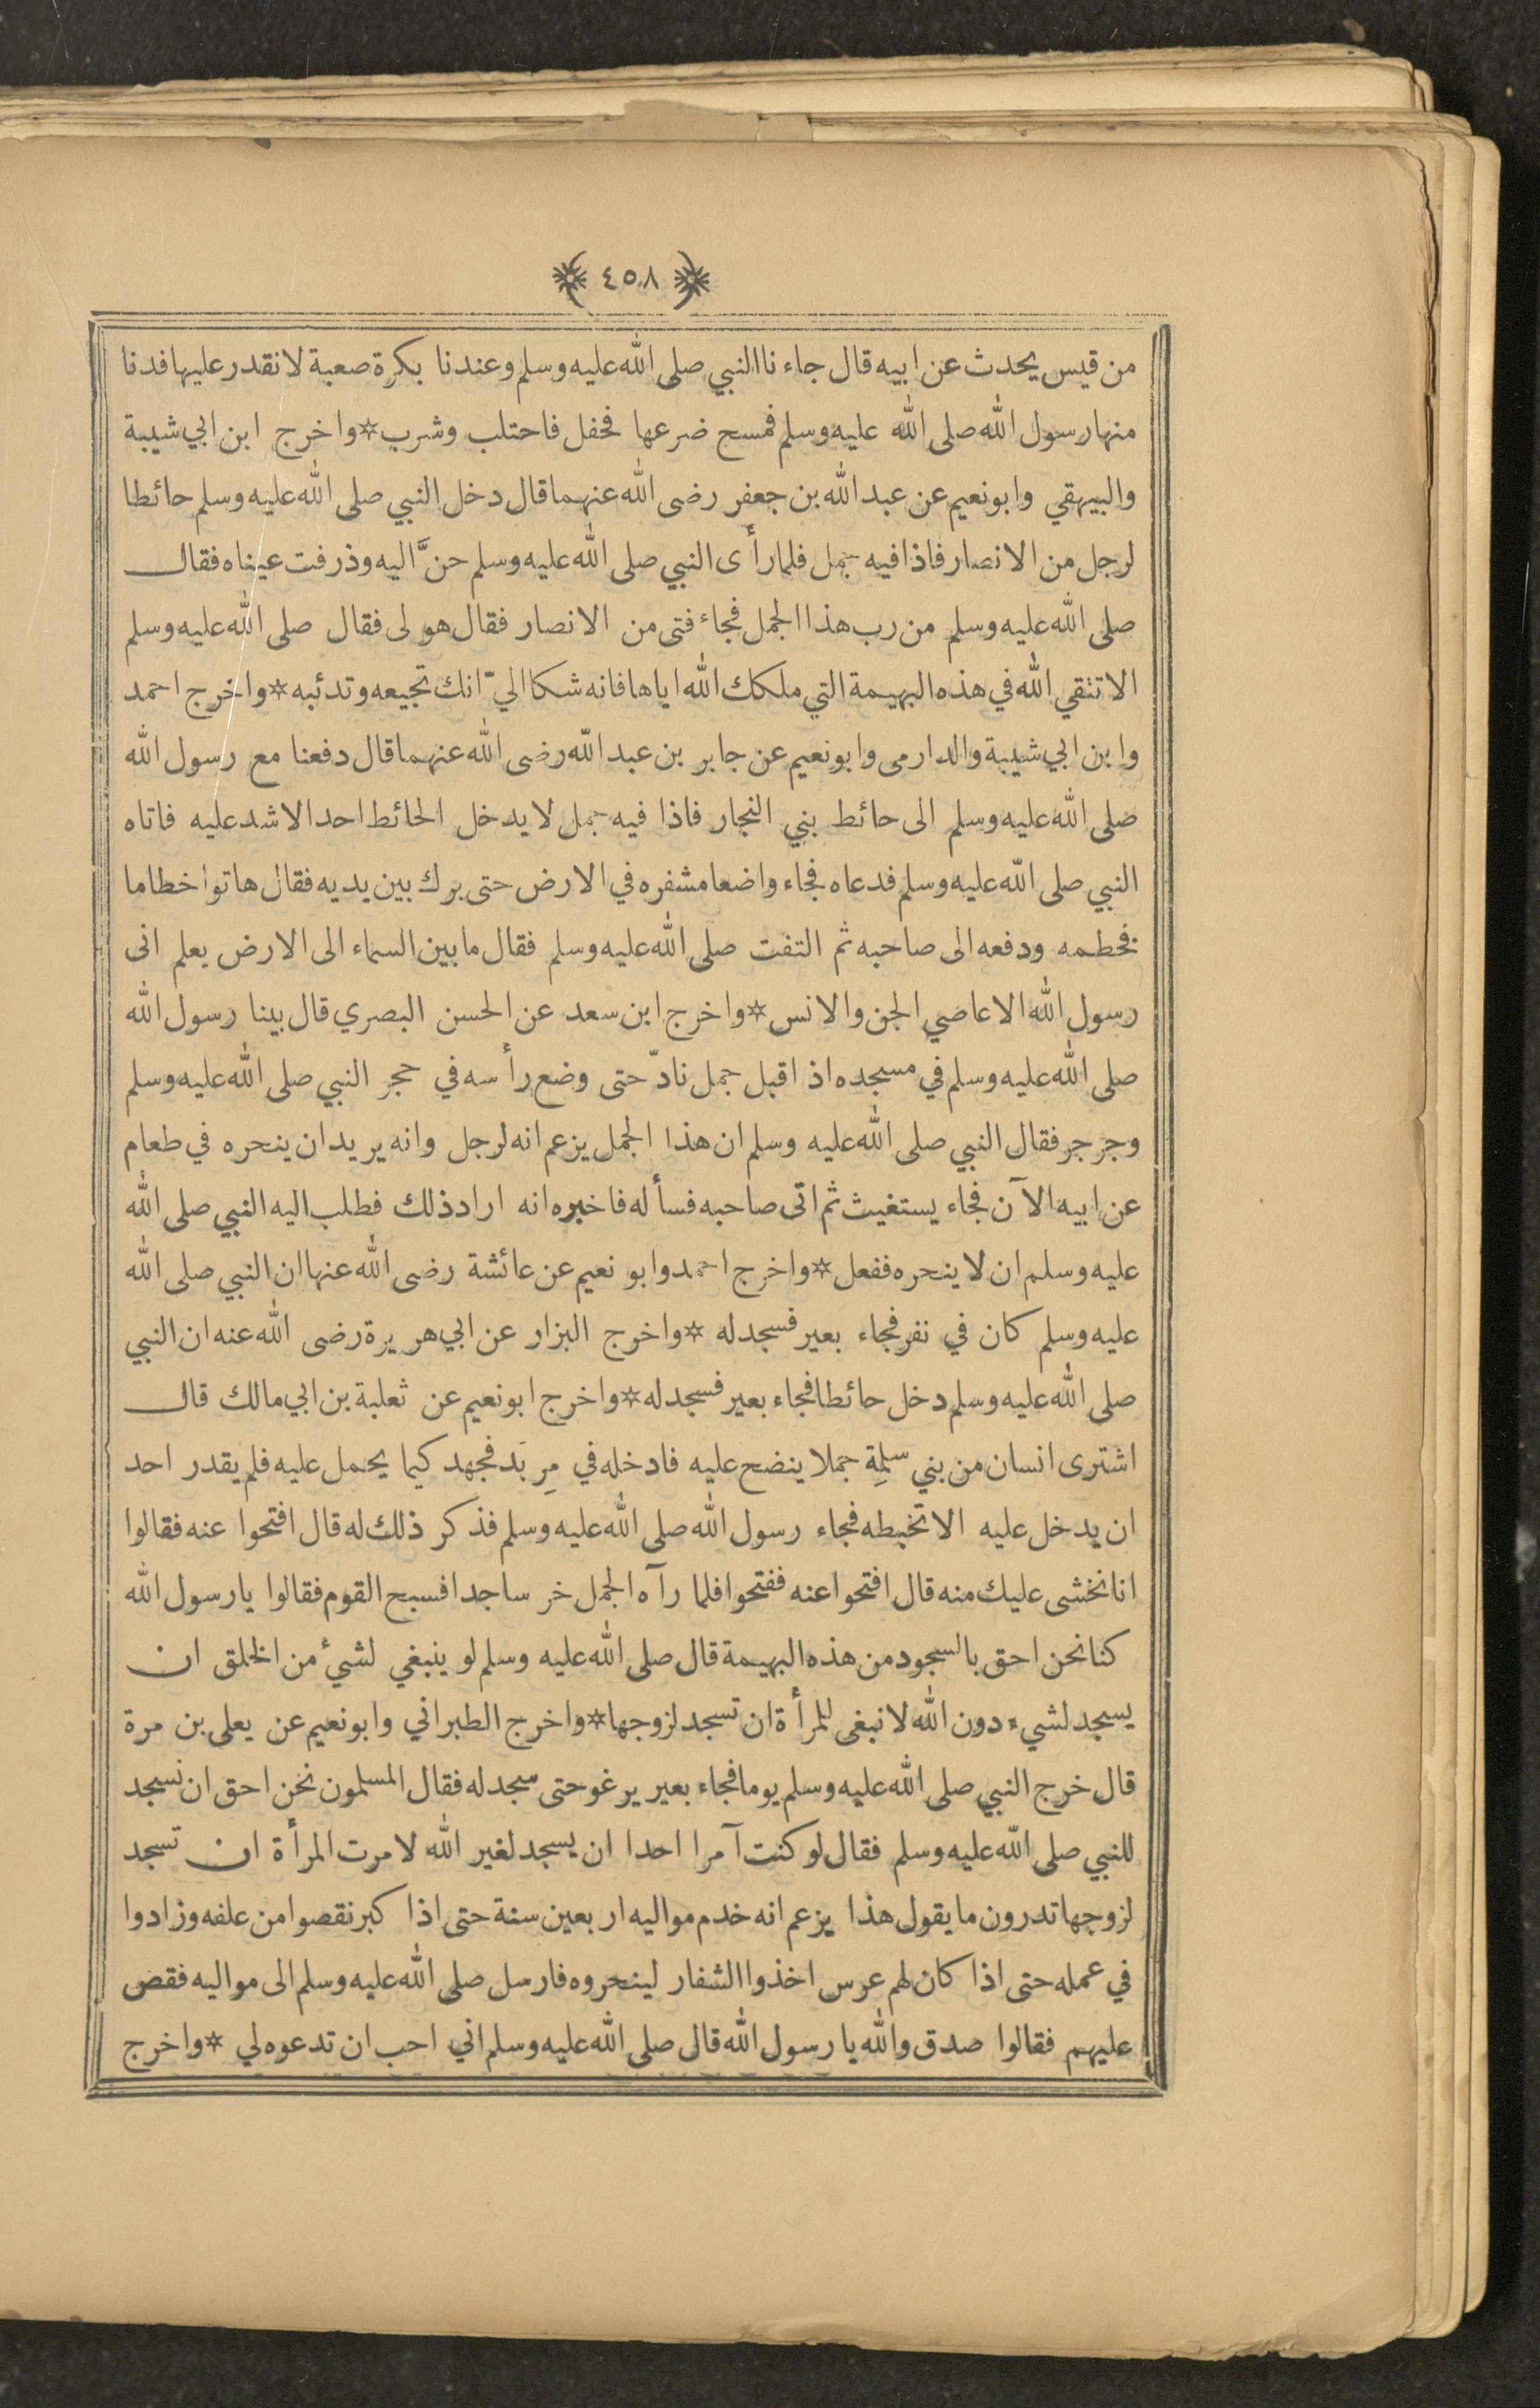 ٤٥٨
من قيس يحدث عن ابيه قال جاءنا النبي صلى الله عليه وسلم وعندنا بكرة صعبة لا نقدر عليها فدنا
منها رسول الله صلى الله عليه وسلم فمسح ضرعها فحفل فاحتلب وشرب * واخرج ابن ابي شيبة
والبيهقي وابو نعيم عن عبد الله بن جعفر رضى الله عنهما قال دخل النبي صلى الله عليه وسلم حائطا
لرجل من الانصار فاذا فيه جمل فلما رأى النبي صلى الله عليه وسلم حنَّ اليه وذرفت عيناه فقال
صلى الله عليه وسلم من رب هذا الجمل فجاء فتى من الانصار فقال هو لى فقال صلى الله عليه وسلم
الا تتقي الله في هذه البهيمة التي ملكك الله اياها فانه شكا اليّ انك تجيعه وتدئبه * واخرج احمد
وابن ابي شيبة والدارمى وابو نعيم عن جابر بن عبد الله رضى الله عنهما قال دفعنا مع رسول الله
صلى الله عليه وسلم الى حائط بني النجار فاذا فيه جمل لا يدخل الحائط احد الا شد عليه فاتاه
النبي صلى الله عليه وسلم فدعاه فجاء واضعا مشفره في الارض حتى برك بين يديه فقال هاتوا خطاما
فخطمه ودفعه الى صاحبه ثم التفت صلى الله عليه وسلم فقال ما بين السماء الى الارض يعلم انى
رسول الله الا عاصي الجن والانس * واخرج ابن سعد عن الحسن البصري قال بينا رسول الله
صلى الله عليه وسلم في مسجده اذ اقبل جمل نادّ حتى وضع رأسه في حجر النبي صلى الله عليه وسلم
وجرجر فقال النبي صلى الله عليه وسلم ان هذا الجمل يزعم انه لرجل وانه يريد ان ينحره في طعام
عن ابيه الآن فجاء يستغيث ثم اتى صاحبه فسأله فاخبره انه اراد ذلك فطلب اليه النبي صلى الله
عليه وسلم ان لا ينحره ففعل * واخرج احمد وابو نعيم عن عائشة رضى الله عنها ان النبي صلى الله
عليه وسلم كان في نفر فجاء بعير فسجد له * واخرج البزار عن ابي هريرة رضى الله عنه ان النبي
صلى الله عليه وسلم دخل حائطا فجاء بعير فسجد له * واخرج ابو نعيم عن ثعلبة بن ابي مالك قال
اشترى انسان من بني سلمِة جملا ينضح عليه فادخله في مِربَد فجهد كيما يحمل عليه فلم يقدر احد
ان يدخل عليه الا تخبطه فجاء رسول الله صلى الله عليه وسلم فذكر ذلك له قال افتحوا عنه فقالوا
انا نخشى عليك منه قال افتحوا عنه ففتحوا فلما رآه الجمل خر ساجدا فسبح القوم فقالوا يا رسول الله
كنا نحن احق بالسجود من هذه البهيمة قال صلى الله عليه وسلم لو ينبغي لشيء من الخلق ان
يسجد لشيء دون الله لا نبغى للمرأة ان تسجد لزوجها * واخرج الطبراني وابو نعيم عن يعلى بن مرة
قال خرج النبي صلى الله عليه وسلم يوما فجاء بعير يرغو حتى سجد له فقال المسلمون نحن احق ان نسجد
للنبي صلى الله عليه وسلم فقال لو كنت آمرا احدا ان يسجد لغير الله لامرت المرأة ان تسجد
لزوجها تدرون ما يقول هذا يزعم انه خدم مواليه اربعين سنة حتى اذا كبر نقصوا من علفه وزادوا
في عمله حتى اذا كان لهم عرس اخذوا الشفار لينحروه فارسل صلى الله عليه وسلم الى مواليه فقص
عليهم فقالوا صدق والله يا رسول الله قال صلى الله عليه وسلم اني احب ان تدعوه لي * واخرج